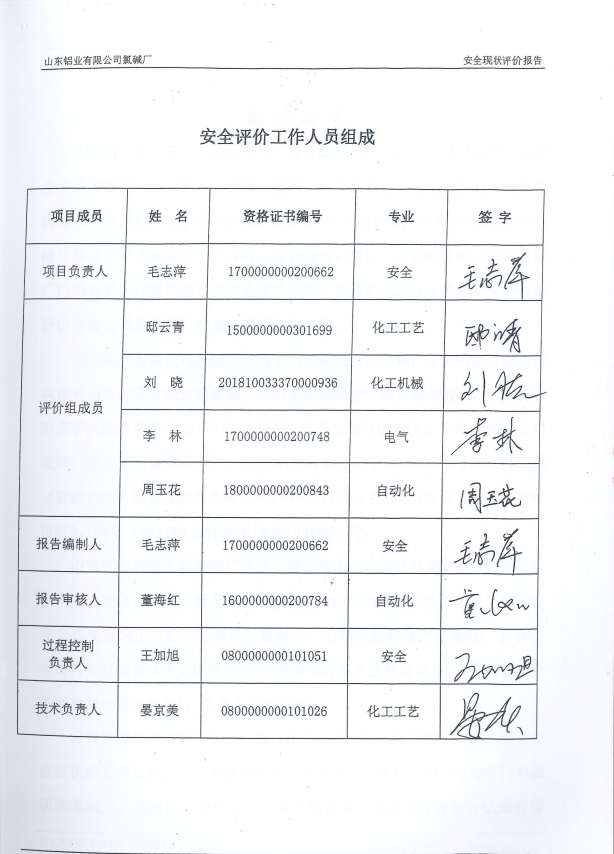 山东铝业有限公司氯碱厂 安全现状评价报告
安全评价工作人员组成
项目成员 姓 名 资格证书编号 专业 签 字
项目负责人 毛志萍 1700000000200662 安全 毛志萍
评价组成员
邸云青 1500000000301699 化工工艺
刘 晓 201810033370000936 化工机械
李 林 1700000000200748 电气 李林
周玉花 1800000000200843 自动化 周玉花
报告编制人 毛志萍 1700000000200662 安全 毛志萍
报告审核人 董海红 1600000000200784 自动化
过程控制
负责人 王加旭 0800000000101051 安全
技术负责人 晏京美 0800000000101026 化工工艺